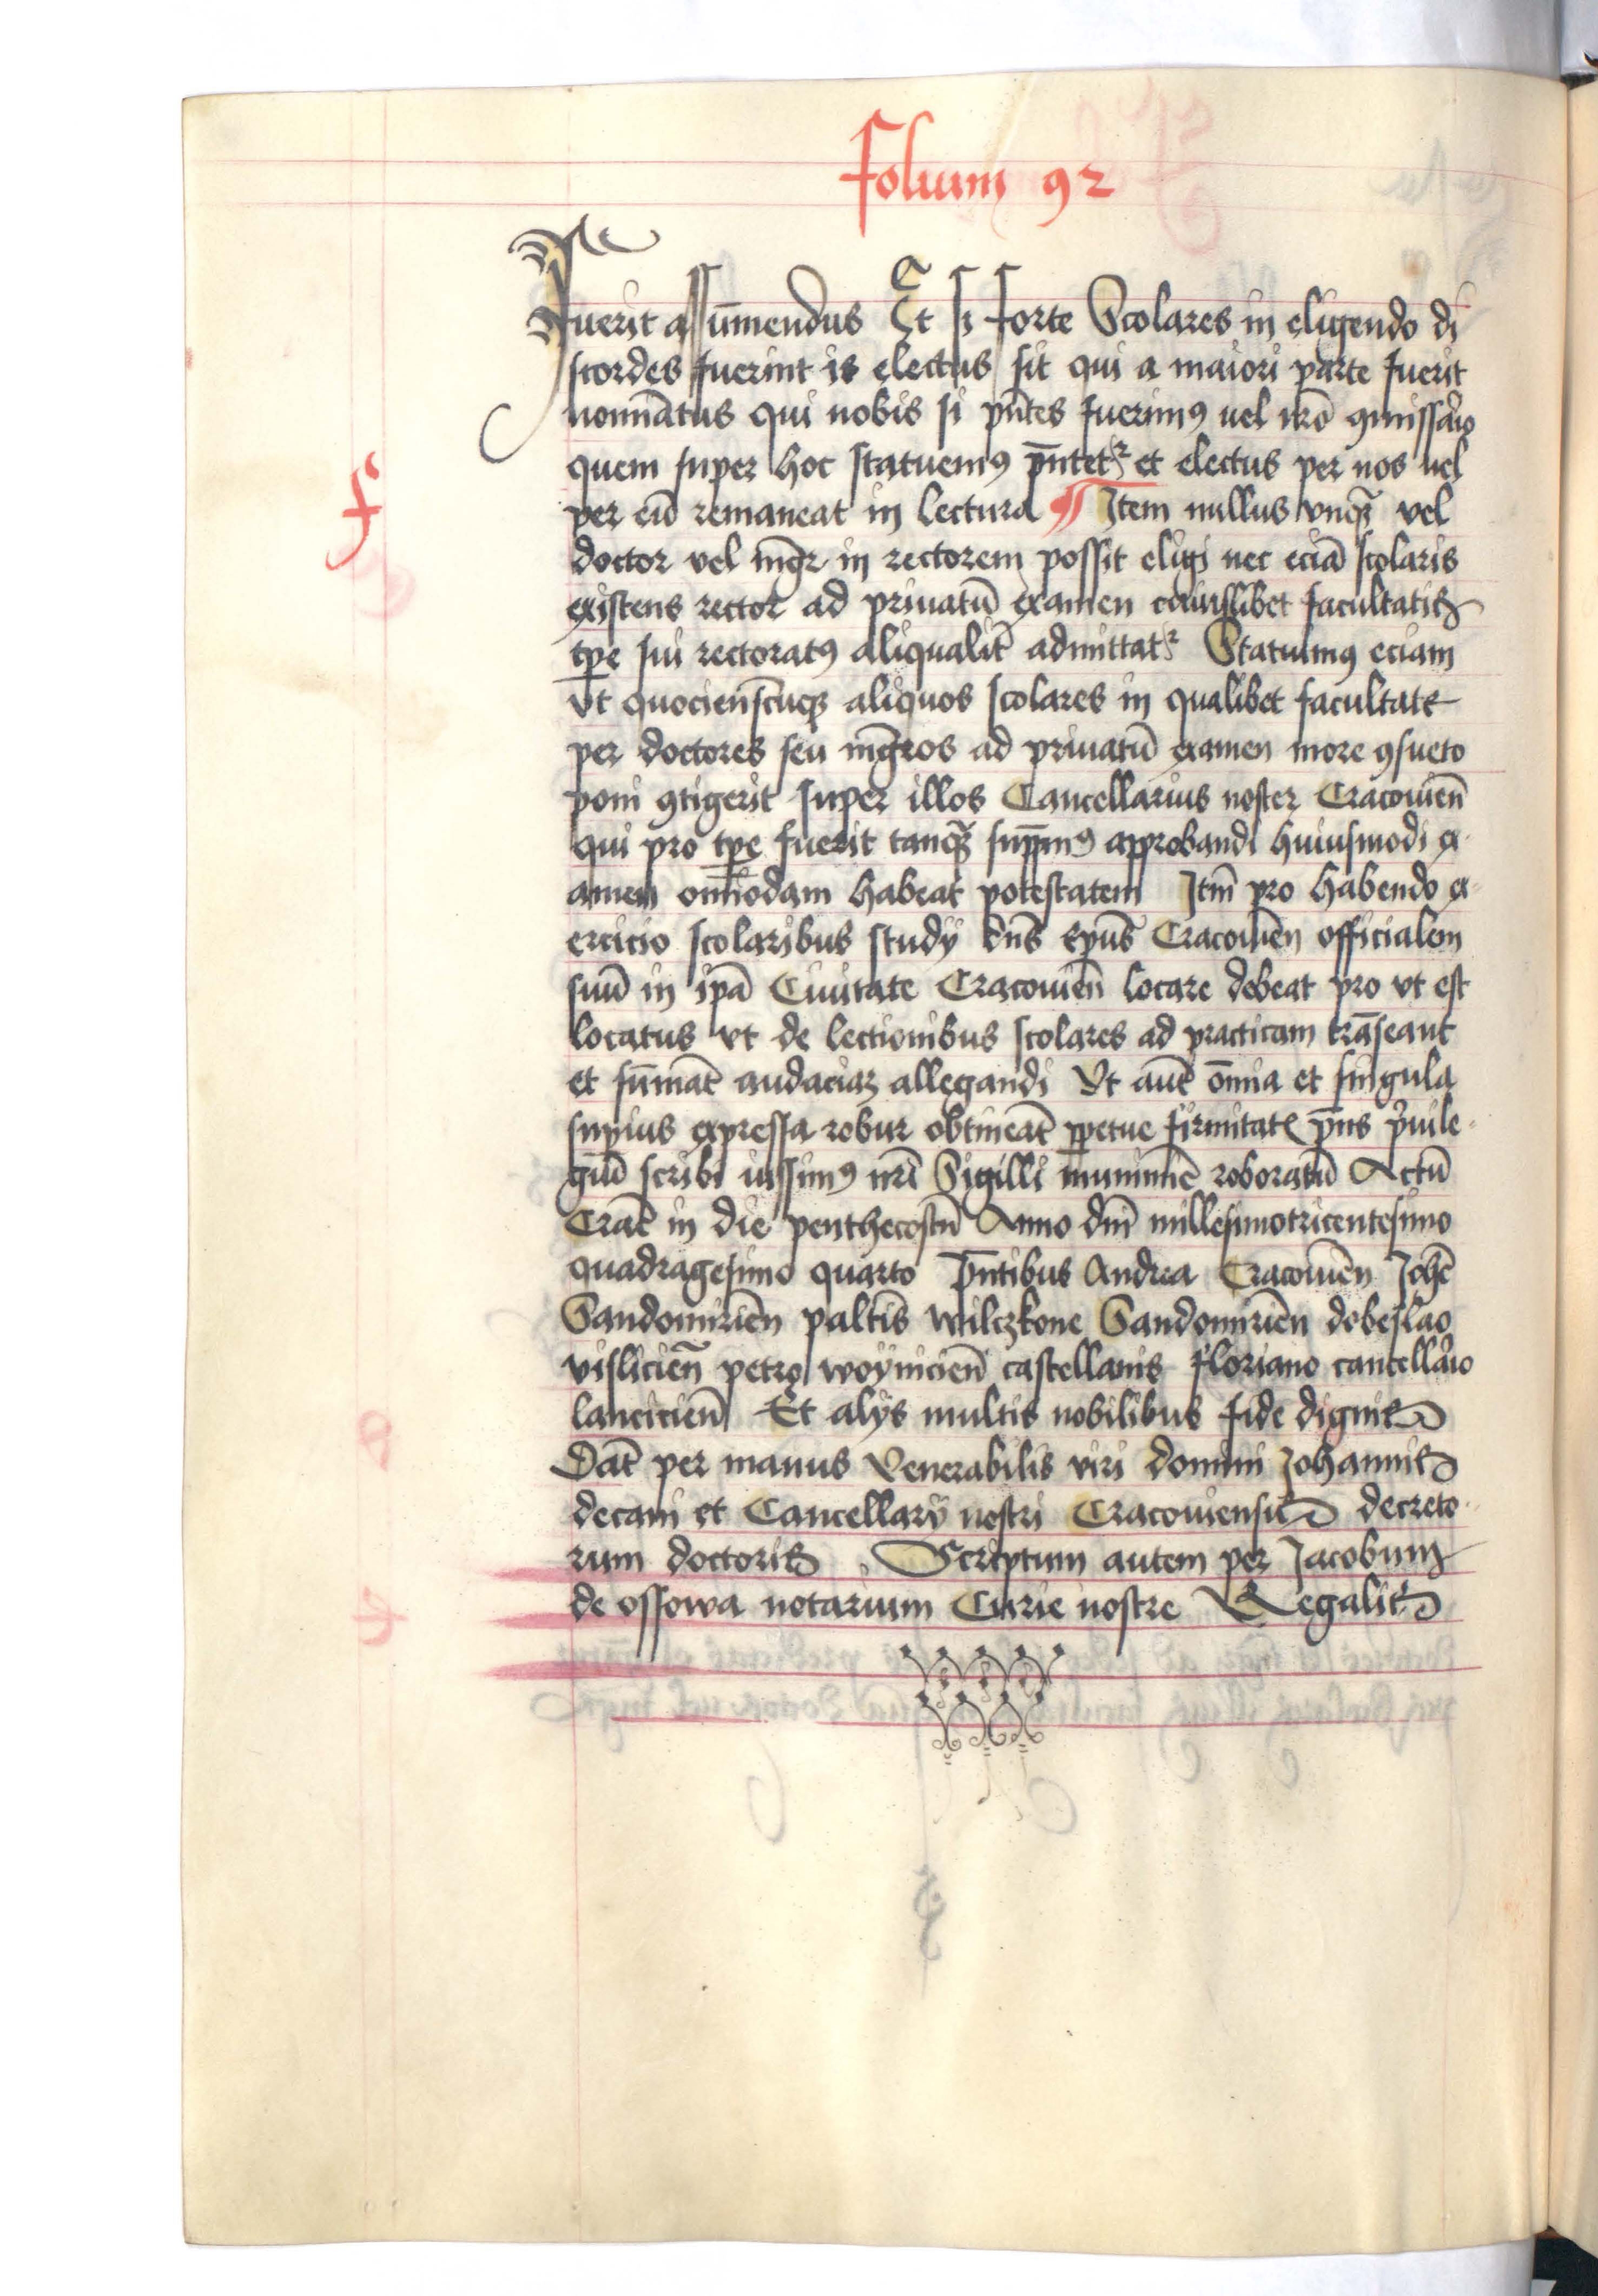 folium 92
fuerit assūmendus Et si forte Scolares in eligendo di
scordes fuerint is electus sit qui a maiori parte fuerit
nominātus qui nobis si pn̄tes fuerimꝯ uel nr̄o ꝯmissario
quem super hoc statuemꝯ pn̄tetr et electus per nos uel
per eū remaneat in lectura ¶ Item nullus vnqꝫ vel
doctor vel mgr̄ in rectorem possit eligi nec eciā scolaris
f
existens rector ad priuatū examen cuiuslibet facultatis
tpe sui rectoratꝯ aliqualit̄ admittatr Statuimꝯ eciam
vt quociensc̄uqꝫ aliquos scolares in qualibet facultate
per doctores seu mgr̄os ad priuatū examen more ꝯsueto
poni ꝯtigerit super illos Cancellarius noster Cracouien̄
qui pro tpe fuerit tanqꝫ sup̄mꝯ approbandi huiusmodi ex
amen omīodam habeat potestatem Itm̄ pro habendo ex
ercicio scolaribus studij dn̄s Epūs Cracouien̄ officialem
suū in ip̄a Ciuitate Cracouien̄ locare debeat pro vt est
locatus vt de lectionibus scolares ad practicam trāseant
et sūmāt audaciaꝫ allegandi Vt aut̄ om̄ia et singula
supius expressa robur obtineāt ꝑpetue firmitatꝭ pn̄s priuile
giū scribi iussimꝯ nr̄i Sigilli munimīe roboratū Actū
Crac̄ in die penthecostū Anno dn̄i millesimotricentesimo
quadragesimo quarto Pn̄tibus Andrea Cracouien̄ Joh̄e
Sandomirien̄ paltīs wilczkone Sandomirien̄ dobeslao
vislicien̄ petro woynicien̄ castellanis floriano cancellario
lancicien̄ Et alijs multis nobilibus fide dignis
Dat̄ per manus Venerabilis viri domini Johannis
decani et Cancellarij nostri Cracouiensis decreto
rum doctoris Scriptum autem per Jacobum
de ossowa notarium Curie nostre Regalis